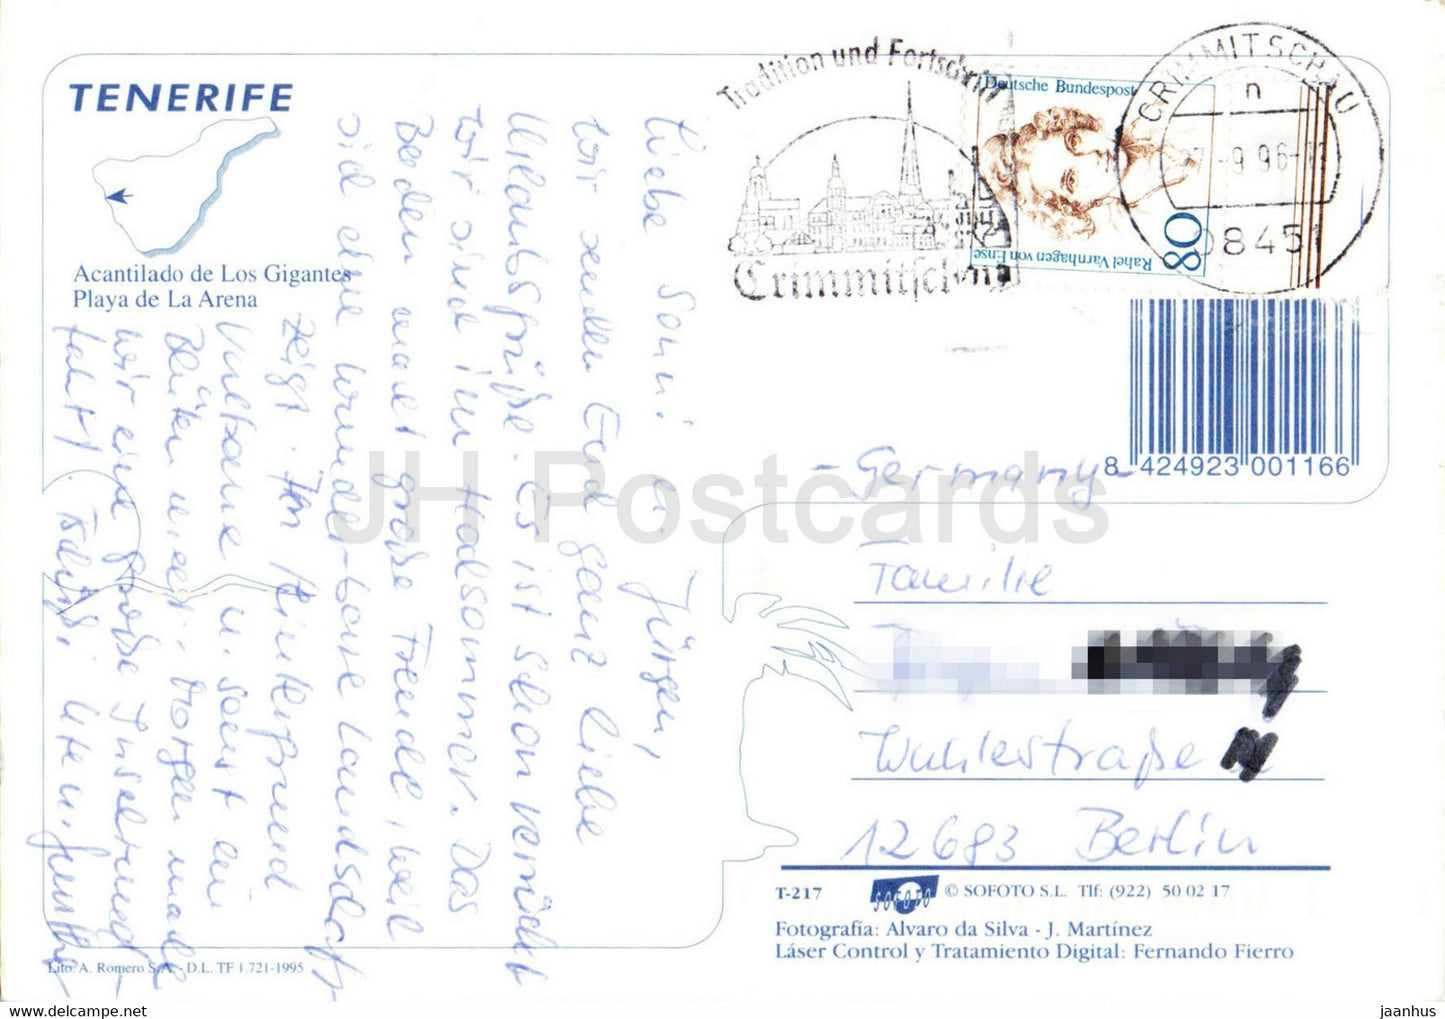 TENERIFE
Acantilado de Los Gigantes
Playa de La Arena
Tradition und Fortschritt
Crimmitschau
Deutsche Bundespost
Rahel Varnhagen von Ense
80
CRIMMITSCHAU
n
-9 96-
0845
8 424923 001166
Liebe Soni u. Jürgen,
wir senden Euch ganz liebe
Urlaubsgrüße. Es ist schon verrückt
wir sind im Hochsommer. Das
Baden macht große Freude, weil
sich eine wunderbare Landschaft
zeigt. Im Hintergrund
Vulkane u. sonst ein
Blüten meer. Morgen machen
wir eine große Inselrund-
fahrt. Tschüß, Ute u. Günther
-Germany-
Familie
Wuhlestraße
12683 Berlin
T-217
SOFOTO
© SOFOTO S.L. Tlf: (922) 50 02 17
Fotografía: Alvaro da Silva - J. Martínez
Láser Control y Tratamiento Digital: Fernando Fierro
Lito. A. Romero S.A. - D.L. TF 1.721-1995
JH Postcards
www.delcampe.net
jaanhus